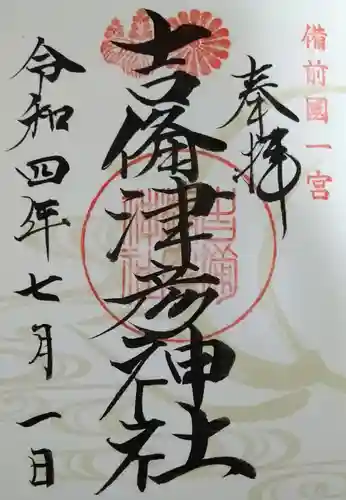 備前國一宮
奉拝
吉備津彦神社
令和四年七月一日